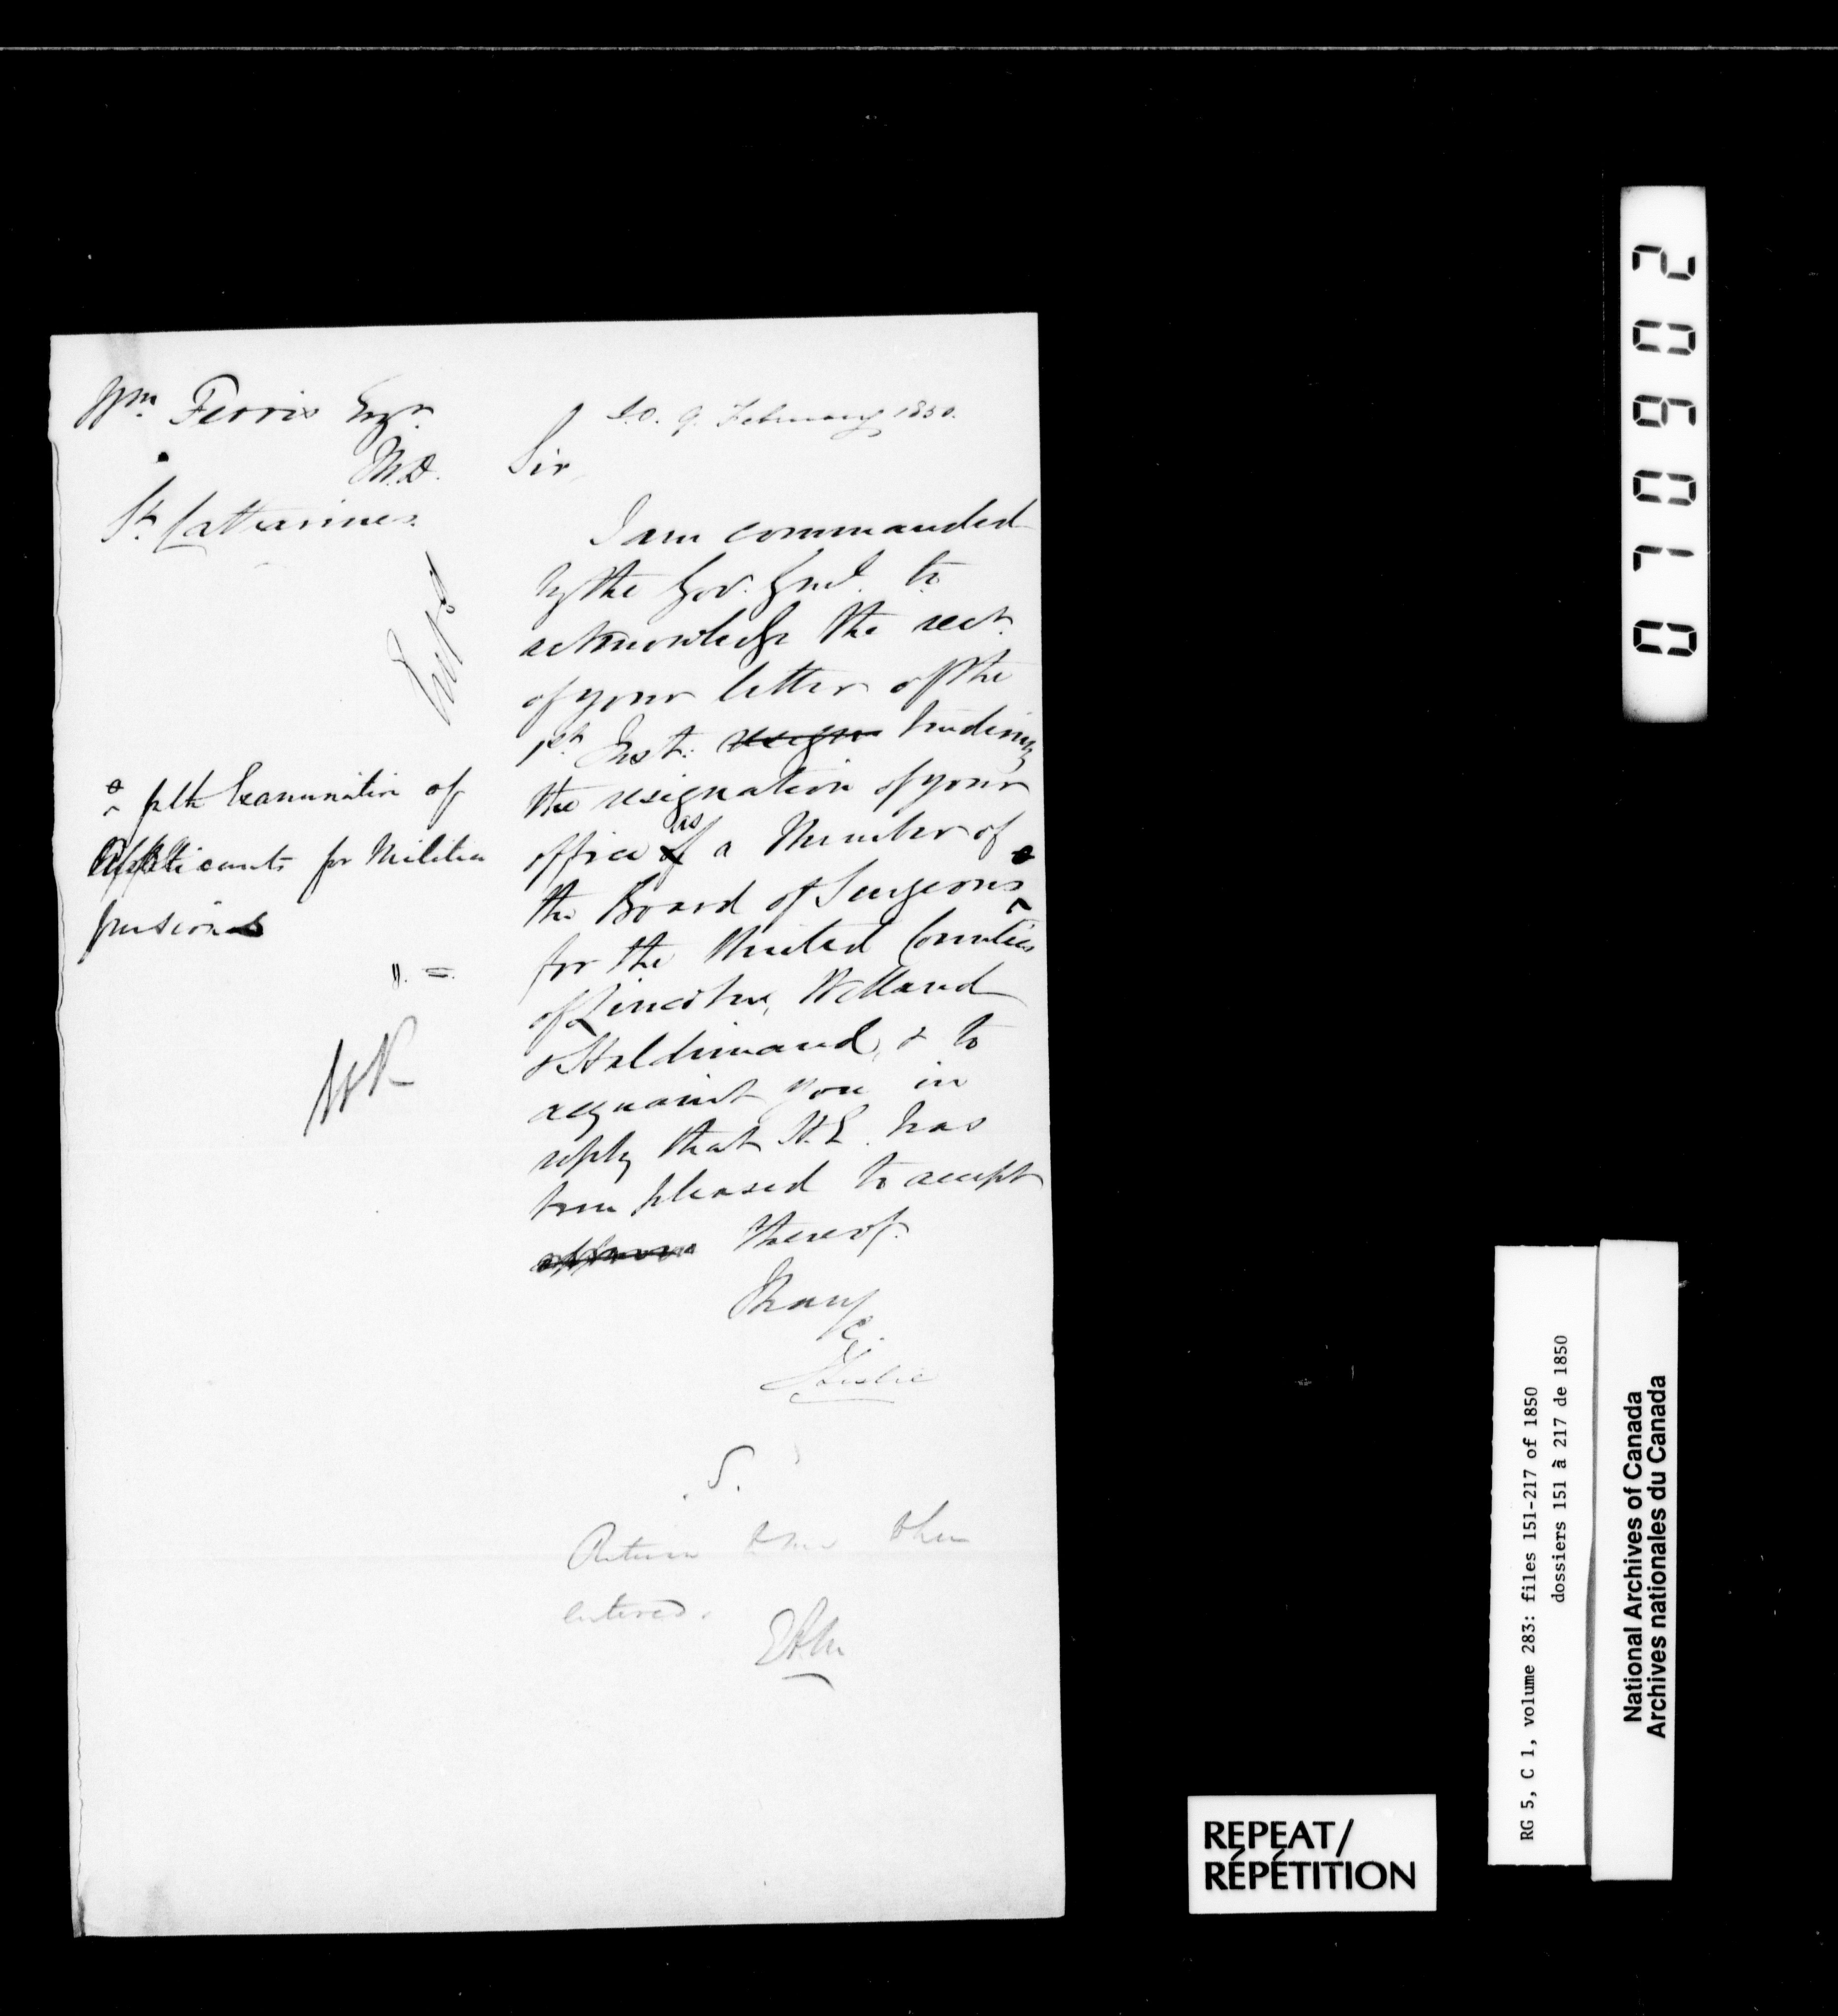 Wm. Ferris Esqr.
M.D.
St. Catharines.
S.O. 9. February 1850.
Sir,
I am commanded
by the Gov. Genl. to
acknowledge the rect.
of your letter of the
1st Inst: tendering
the resignation of your
office as a Member of
the Board of Surgeons
for the United Counties
of Lincoln, Welland
& Haldimand, & to
acquaint you in
reply that H.E. has
been pleased to accept
approve thereof.
I have
&c.
J Leslie
Entd
^ for the Examination of
Applicants for Militia
pensions
S.
Return when
entered.
070902
RG 5, C 1, volume 283: files 151-217 of 1850
dossiers 151 à 217 de 1850
National Archives of Canada
Archives nationales du Canada
REPEAT/
RÉPÉTITION